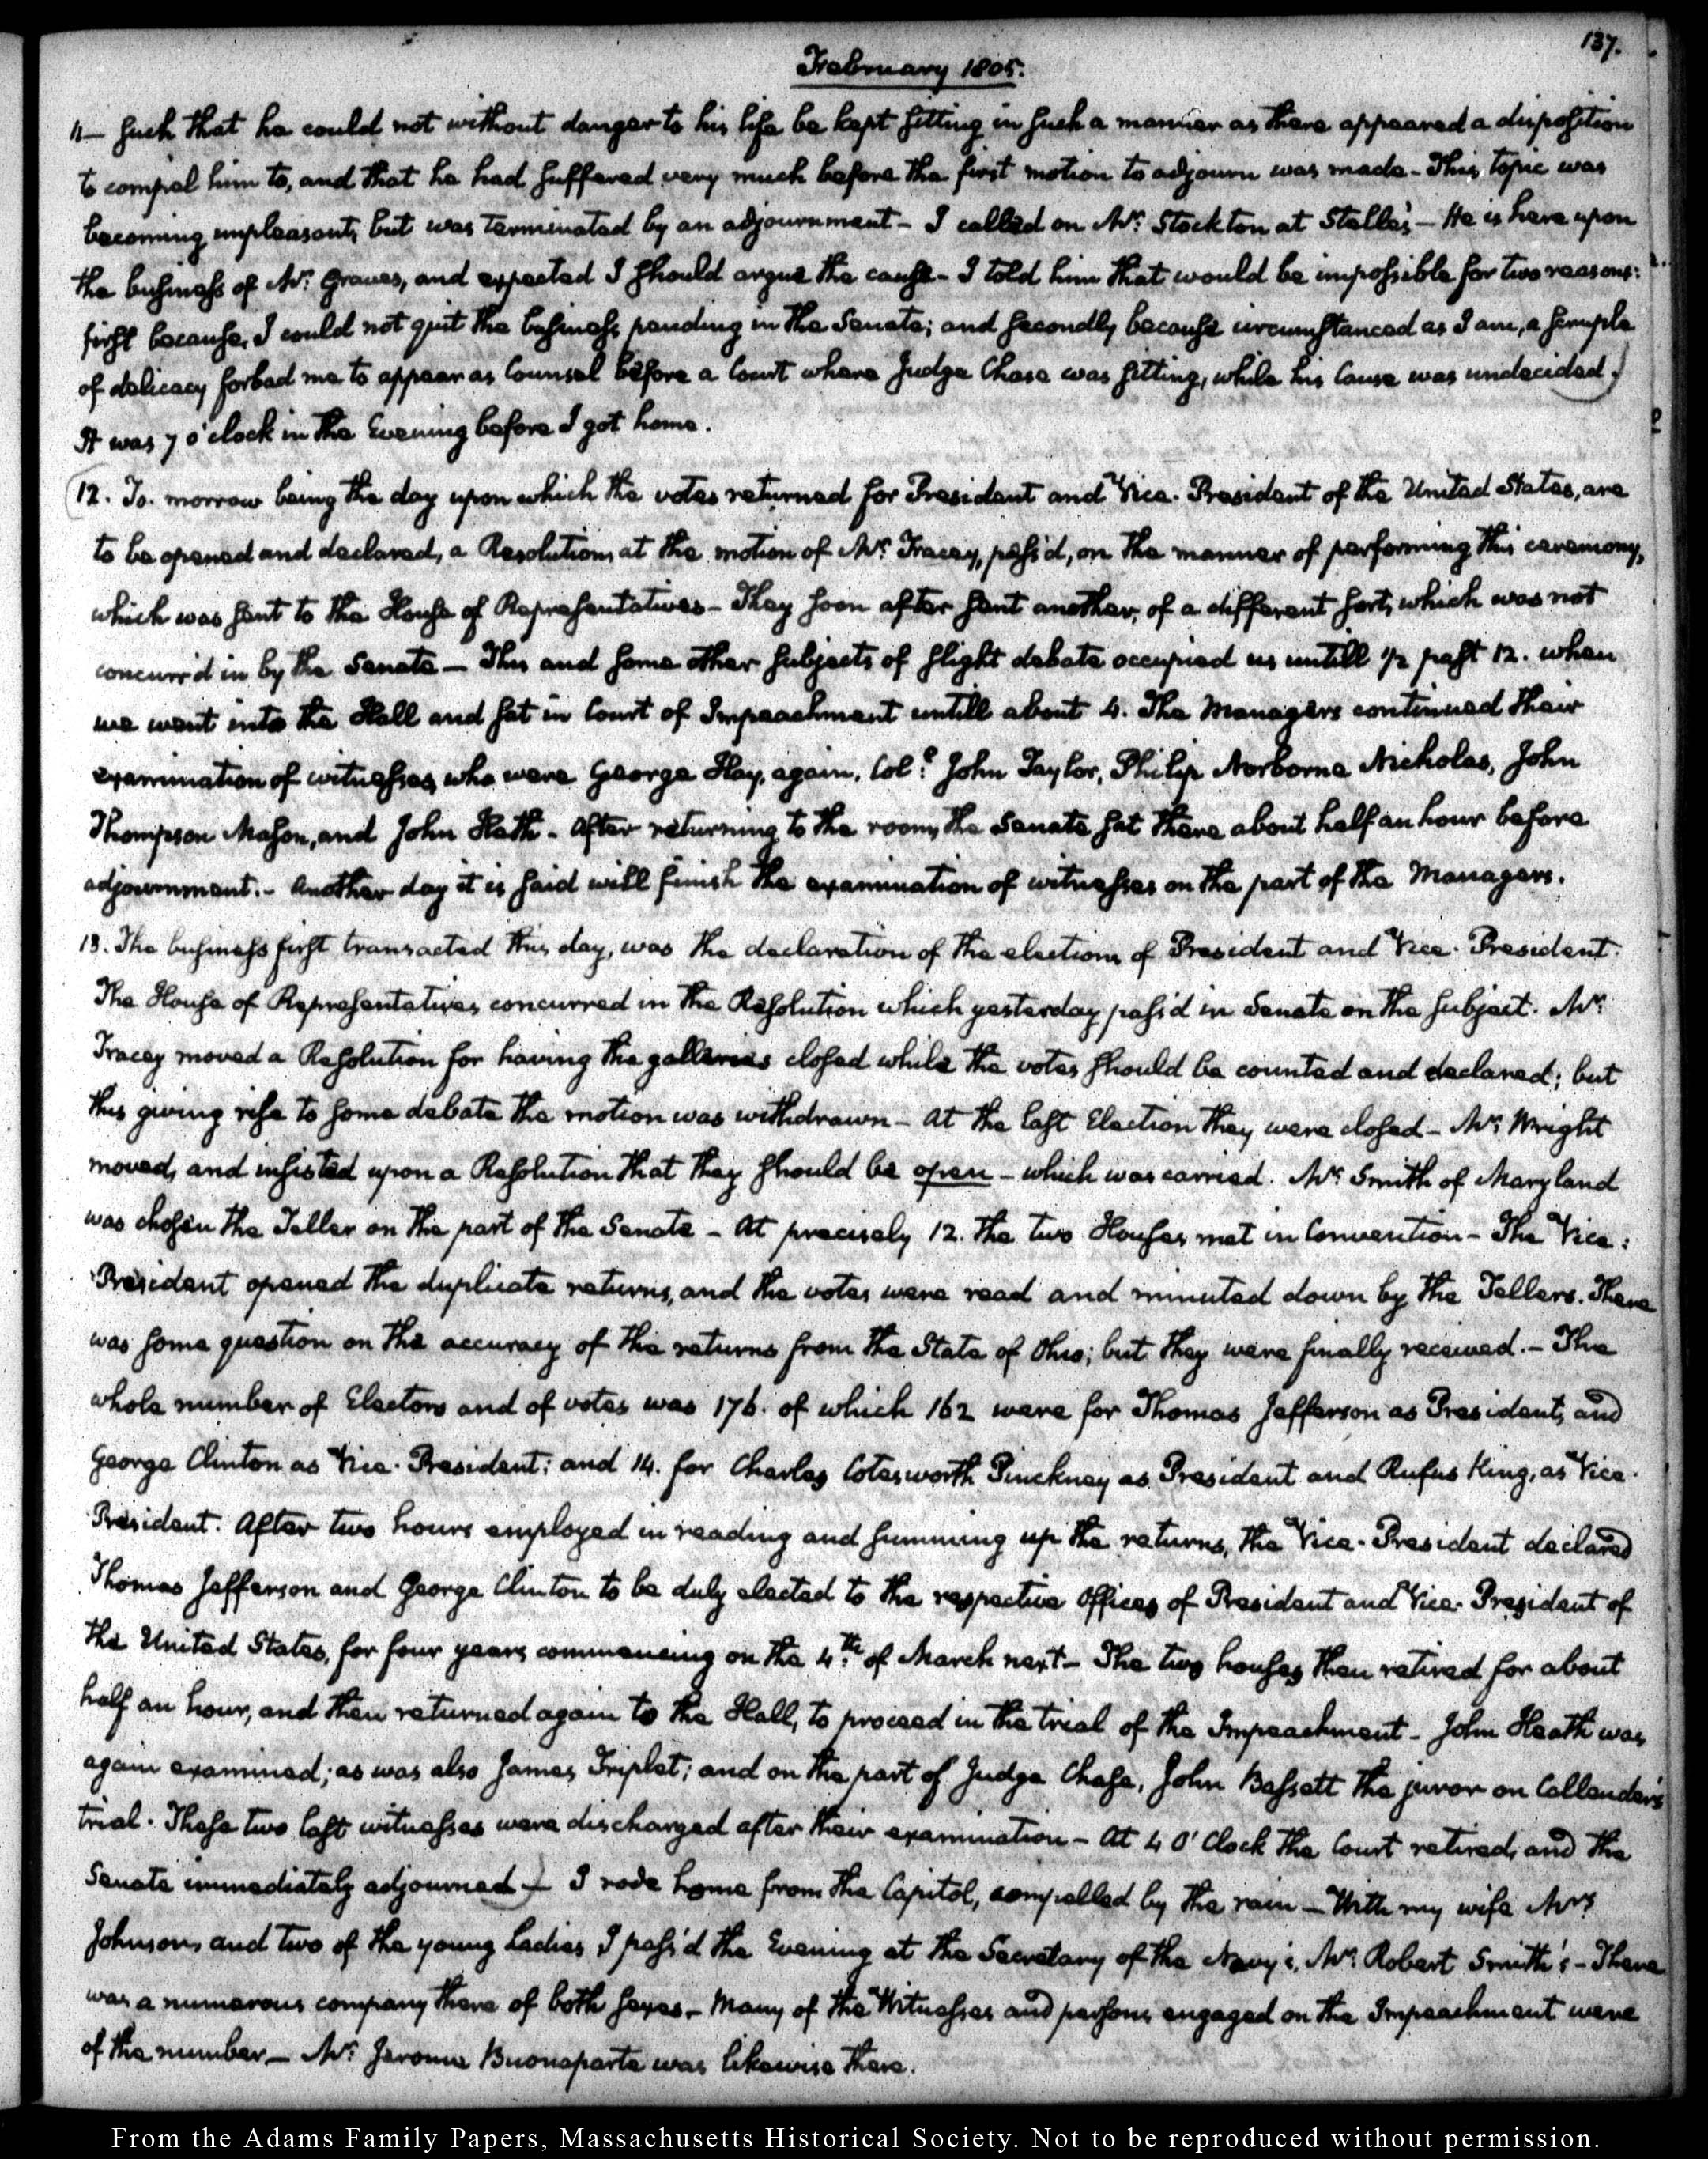 137.
February 1805.
11— such that he could not without danger to his life be kept sitting in such a manner as there appeared a disposition
to compel him to, and that he had suffered very much before the first motion to adjourn was made - This topic was
becoming unpleasant, but was terminated by an adjournment - I called on Mr: Stockton at Stelle's - He is here upon
the business of Mr: Graves, and expected I should argue the cause - I told him that would be impossible for two reasons:
first because, I could not quit the business pending in the Senate; and secondly because circumstanced as I am, a scruple
of delicacy forbad me to appear as Counsel before a Court where Judge Chase was sitting, while his Cause was undecided.)
It was 7 o'clock in the Evening before I got home.
(12. To-morrow being the day upon which the votes returned for President and Vice-President of the United States, are
to be opened and declared, a Resolution, at the motion of Mr: Tracey, pass'd, on the manner of performing this ceremony,
which was sent to the House of Representatives - They soon after sent another, of a different sort, which was not
concurr'd in by the Senate — This and some other subjects of slight debate occupied us untill 1/2 past 12. when
we went into the Hall and sat in Court of Impeachment untill about 4. The Managers continued their
examination of witnesses, who were George Hay, again, Col:o John Taylor, Philip Norborne Nicholas, John
Thompson Mason, and John Heth - After returning to the room, the Senate sat there about half an hour before
adjournment. - Another day it is said will finish the examination of witnesses on the part of the Managers.
13. The business first transacted this day, was the declaration of the elections of President and Vice-President.
The House of Representatives concurred in the Resolution which yesterday pass'd in Senate on the subject. Mr:
Tracey moved a Resolution for having the galleries closed while the votes should be counted and declared; but
this giving rise to some debate the motion was withdrawn - At the last Election they were closed - Mr: Wright
moved, and insisted upon a Resolution that they should be open - which was carried. Mr: Smith of Maryland
was chosen the Teller on the part of the Senate - At precisely 12. the two Houses met in Convention - The Vice:
President opened the duplicate returns, and the votes were read and minuted down by the Tellers. There
was some question on the accuracy of the returns from the State of Ohio; but they were finally received. - The
whole number of Electors and of votes was 176. of which 162 were for Thomas Jefferson as President, and
George Clinton as Vice-President; and 14. for Charles Cotesworth Pinckney as President and Rufus King, as Vice-
President. After two hours employed in reading and summing up the returns, the Vice-President declared
Thomas Jefferson and George Clinton to be duly elected to the respective Offices of President and Vice-President of
the United States, for four years commencing on the 4:th of March next - The two houses then retired for about
half an hour, and then returned again to the Hall, to proceed in the trial of the Impeachment - John Heath was
again examined; as was also James Triplet; and on the part of Judge Chase, John Bassett the juror on Callender's
trial. These two last witnesses were discharged after their examination - At 4 O'Clock the Court retired, and the
Senate immediately adjourned -) I rode home from the Capitol, compelled by the rain - With my wife Mrs:
Johnson, and two of the young Ladies I pass'd the Evening at the Secretary of the Navy's, Mr: Robert Smith's - There
was a numerous company there of both sexes - Many of the Witnesses and persons engaged on the Impeachment were
of the number - Mr: Jerome Buonaparte was likewise there.
From the Adams Family Papers, Massachusetts Historical Society. Not to be reproduced without permission.